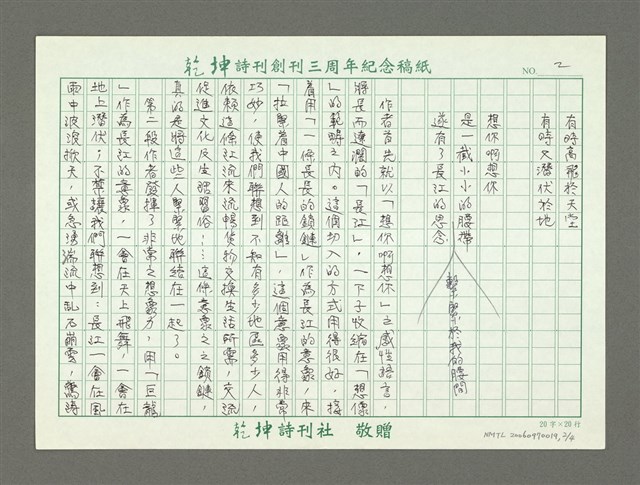 乾坤詩刊創刊三周年紀念稿紙
NO. 2
有時高飛於天堂
有時又潛伏於地
想你啊想你
是一截小小的腰帶
繫緊於我的腰間
遂有了長江的思念
作者首先就以「想你啊想你」之感性語言，
將長而遼濶的「長江」，一下子收縮在「想像
」的範疇之內。這個切入的方式用得很好。接
着用「一條長長的鎖鏈」作為長江的意象，來
「拉緊着中國人的距離」，這個意象用得非常
巧妙，使我們聯想到不知有多少地區多少人，
依賴這條江流來流暢貨物交換生活所需，交流
促進文化民生強習俗……這件意象之鎖鏈，
真的是將這些人緊緊地聯結在一起了。
第二段作者發揮了非常之想象力，用「巨龍
」作為長江的意象，一會在天上飛舞，一會在
地上潛伏；不禁讓我們聯想到：長江一會在風
雨中波浪掀天，或急湧湍流中乱石崩雲，驚濤
20字×20行
乾坤詩刊社 敬贈
NMTL 20060970019, 2/4